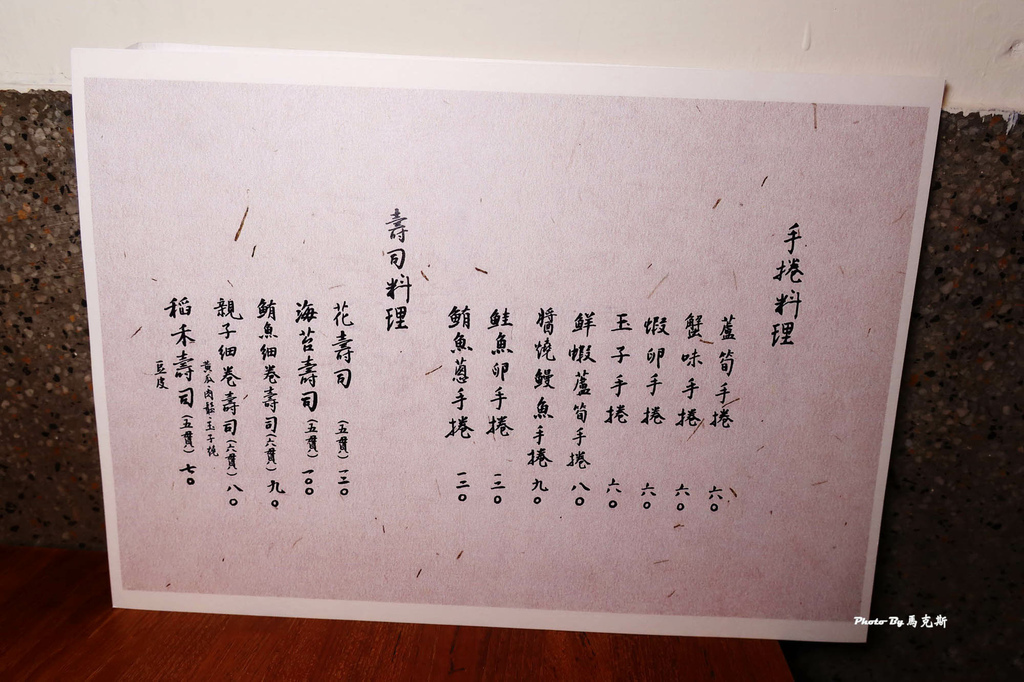 手捲料理
蘆筍手捲 六〇
蟹味手捲 六〇
蝦卵手捲 六〇
玉子手捲 六〇
鮮蝦蘆筍手捲 八〇
醬燒鰻魚手捲 九〇
鮭魚卵手捲 一三〇
鮪魚蔥手捲 一二〇
壽司料理
花壽司 (五貫) 一二〇
海苔壽司 (五貫) 一〇〇
鮪魚細卷壽司 (六貫) 九〇
親子細卷壽司 (六貫) 八〇
黃瓜、肉鬆、玉子燒
稻禾壽司 (五貫) 七〇
豆皮
Photo By 馬克斯